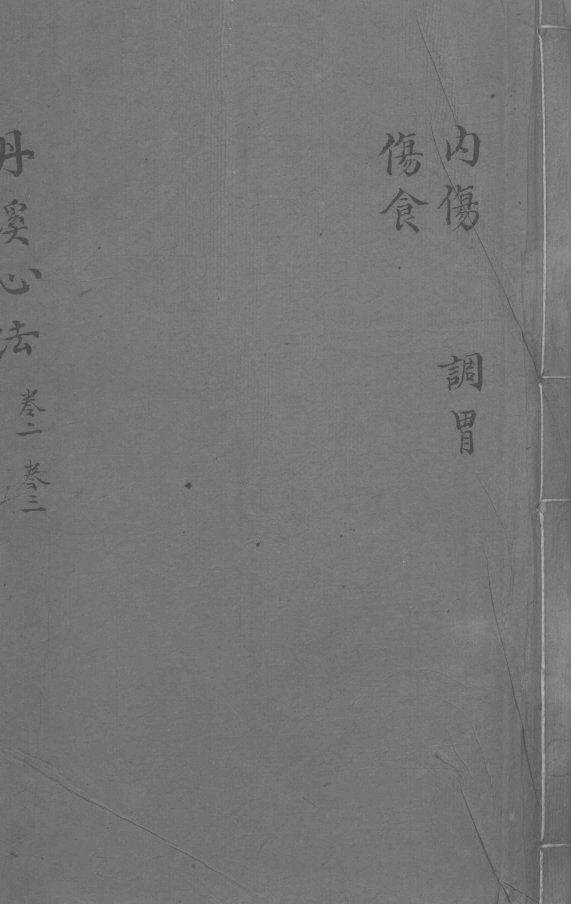 内傷 調胃
傷食
丹溪心法 卷二 卷三